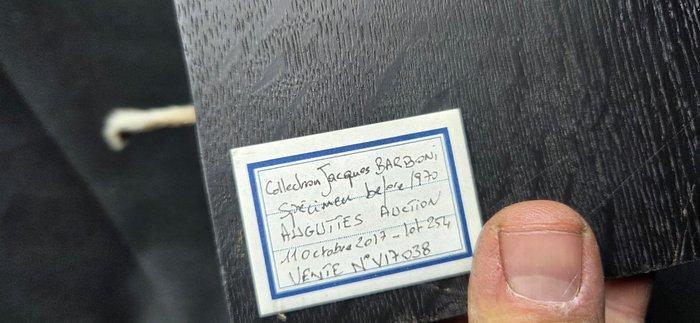 Collection Jacques BARBONI
Spécimen before 1970
AUGUTTES AUCTION
11 octobre 2017 - lot 254
VENTE N° V17038